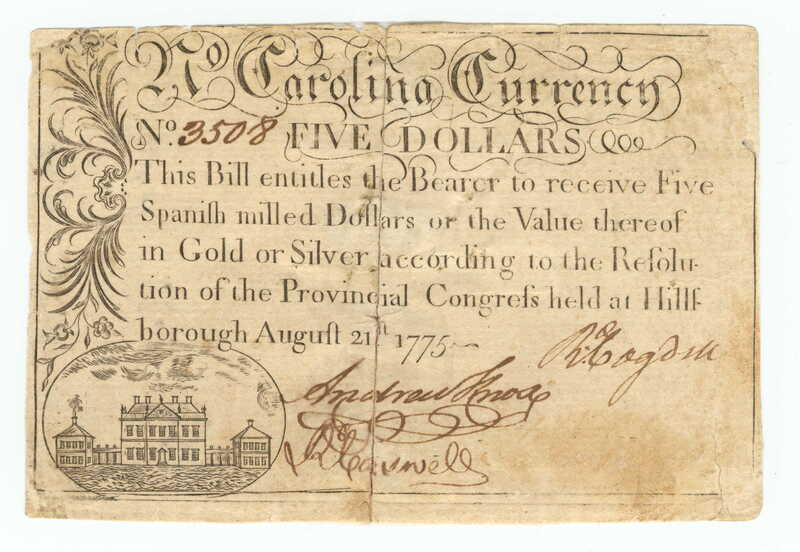 No Carolina Currency
No. 3508 FIVE DOLLARS
This Bill entitles the Bearer to receive Five
Spaniſh milled Dollars or the Value thereof
in Gold or Silver according to the Reſolu-
tion of the Provincial Congreſs held at Hillſ-
borough Auguſt 21st 1775
Rd Cogdell
Andrew Knox
Rd Caswell